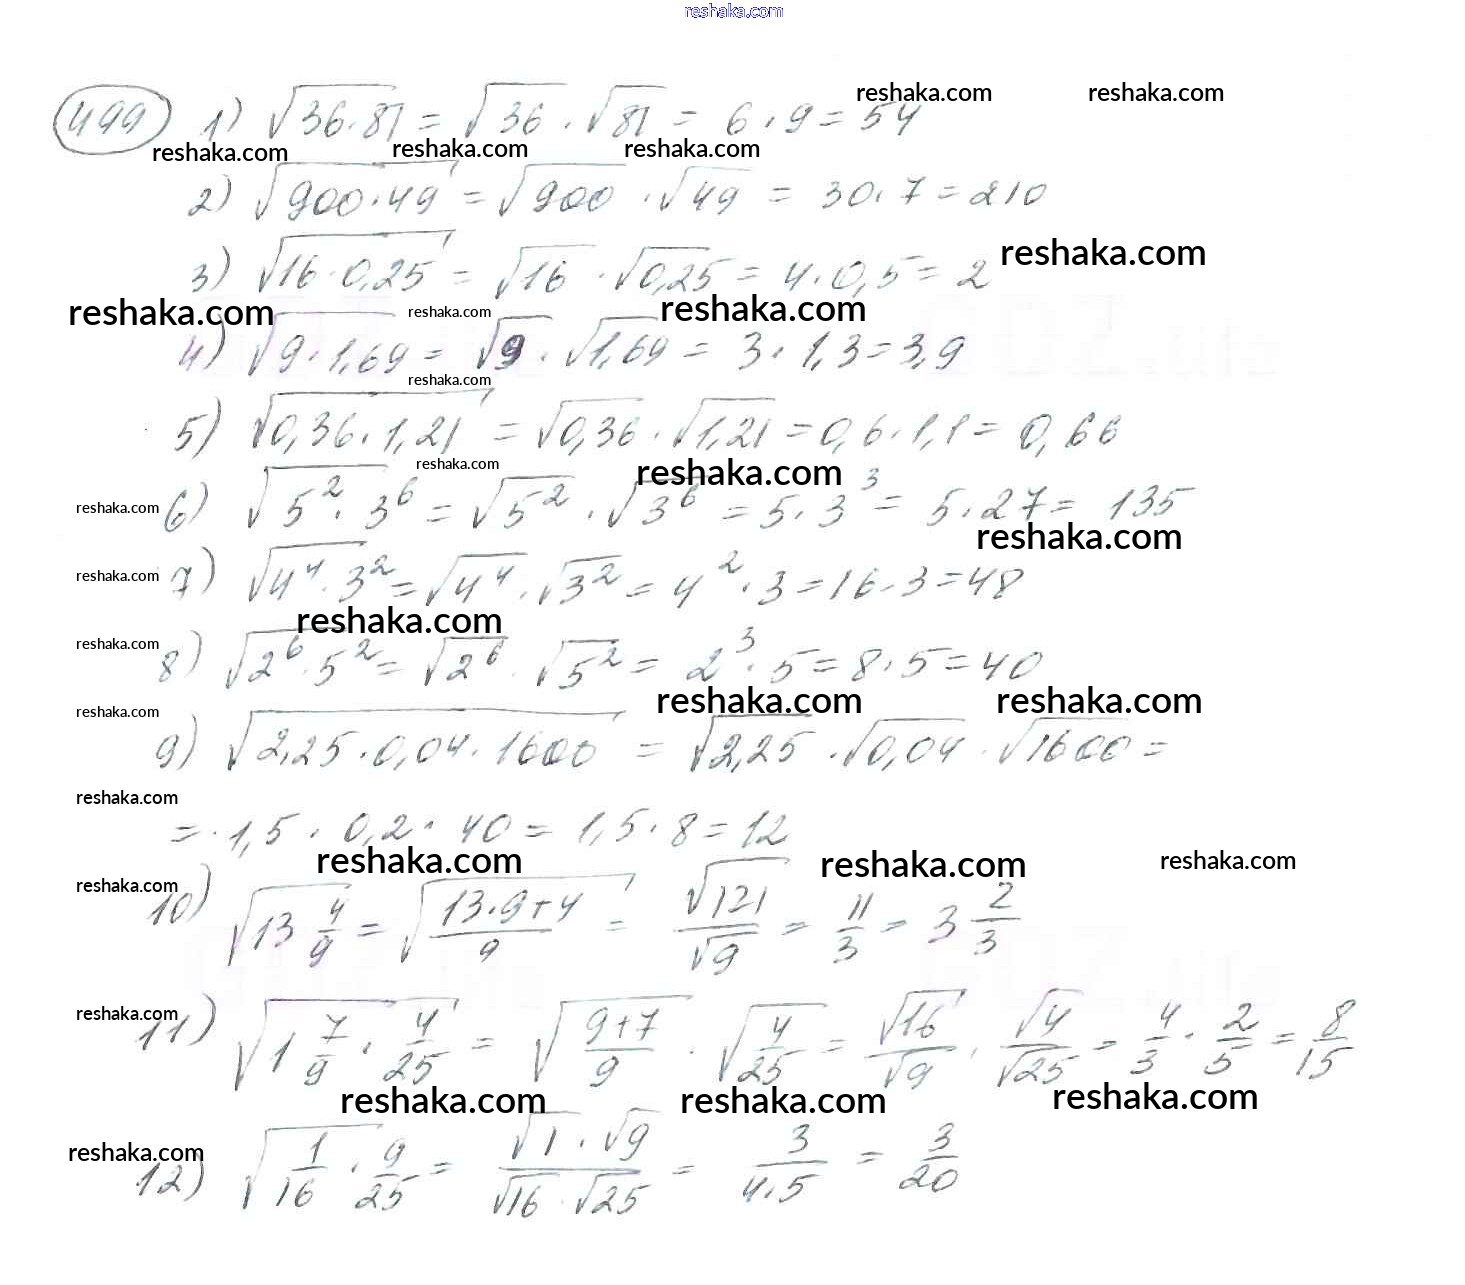 reshaka.com
reshaka.com reshaka.com
499 1) √(36·81) = √36 · √81 = 6 · 9 = 54
reshaka.com reshaka.com reshaka.com
2) √(900·49) = √900 · √49 = 30·7 = 210
3) √(16·0,25) = √16 · √0,25 = 4·0,5 = 2 reshaka.com
reshaka.com reshaka.com reshaka.com
4) √(9·1,69) = √9 · √1,69 = 3·1,3 = 3,9
reshaka.com
5) √(0,36·1,21) = √0,36 · √1,21 = 0,6·1,1 = 0,66
reshaka.com reshaka.com
reshaka.com 6) √(5²·3⁶) = √5² · √3⁶ = 5·3³ = 5·27 = 135
reshaka.com
reshaka.com 7) √(4⁴·3²) = √4⁴ · √3² = 4²·3 = 16·3 = 48
reshaka.com
reshaka.com 8) √(2⁶·5²) = √2⁶ · √5² = 2³·5 = 8·5 = 40
reshaka.com reshaka.com
reshaka.com 9) √(2,25·0,04·1600) = √2,25 · √0,04 · √1600 =
reshaka.com
= 1,5 · 0,2 · 40 = 1,5·8 = 12
reshaka.com reshaka.com reshaka.com
reshaka.com 10) √(13 4/9) = √((13·9+4)/9) = √121/√9 = 11/3 = 3 2/3
reshaka.com 11) √(1 7/9 · 4/25) = √((9+7)/9) · √(4/25) = √16/√9 · √4/√25 = 4/3 · 2/5 = 8/15
reshaka.com reshaka.com reshaka.com
reshaka.com 12) √(1/16 · 9/25) = (√1 · √9)/(√16 · √25) = 3/(4·5) = 3/20